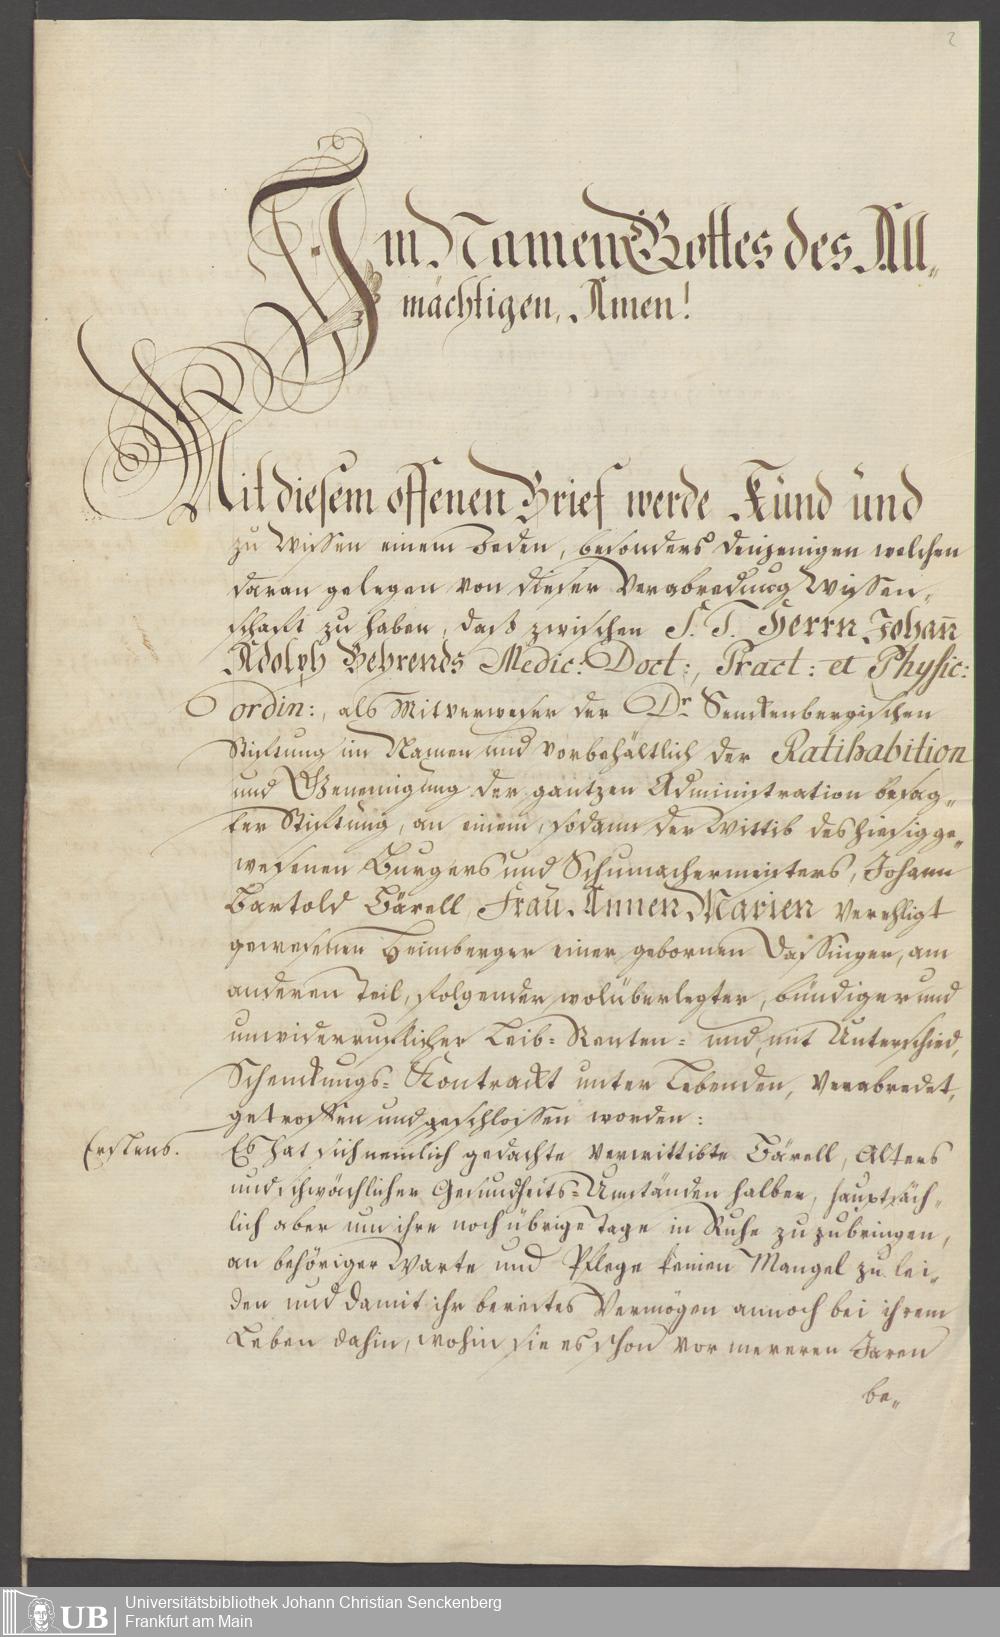 2
Im Namen Gottes des All„
mächtigen, Amen!
Mit diesem offenen Brief werde Kund und
zu wissen einem Jeden, besonders denjenigen welchen
daran gelegen von dieser Verabredung Wissen„
schaft zu haben, daß zwischen S. T. Herrn Johan̄
Adolph Behrends Medic: Doct:, Pract: et Physic:
ordin:, als Mitverweser der Dr Senckenbergischen
Stiftung im Namen und vorbehältlich der Ratihabition
und Genemigung der gantzen Administration besag„
ter Stiftung, an einem, sodann der Wittib des hiesig ge„
wesenen Burgers und Schumachermeisters, Johann
Bartold Bärell, Frau Annen Marien verehligt
gewesenen Heimberger einer gebornen Dassinger, am
anderen Teil, folgender wolüberlegter, bündiger und
unwiderruflicher Leib= Renten= und, mit Unterschied,
Schenckungs= Kontrackt unter Lebenden, verabredet,
getroffen und geschlossen worden:
Erstens.
Es hat sich nemlich gedachte verwittibte Bärell, Alters
und schwächlicher Gesundheits=Umständen halber, hauptsäch„
lich aber um ihre noch übrige Tage in Ruhe zuzubringen,
an behöriger Warte und Pflege keinen Mangel zu lei„
den und damit ihr bereites Vermögen annoch bei ihrem
Leben dahin, wohin sie es schon vor mereren Jaren
be„
UB
Universitätsbibliothek Johann Christian Senckenberg
Frankfurt am Main